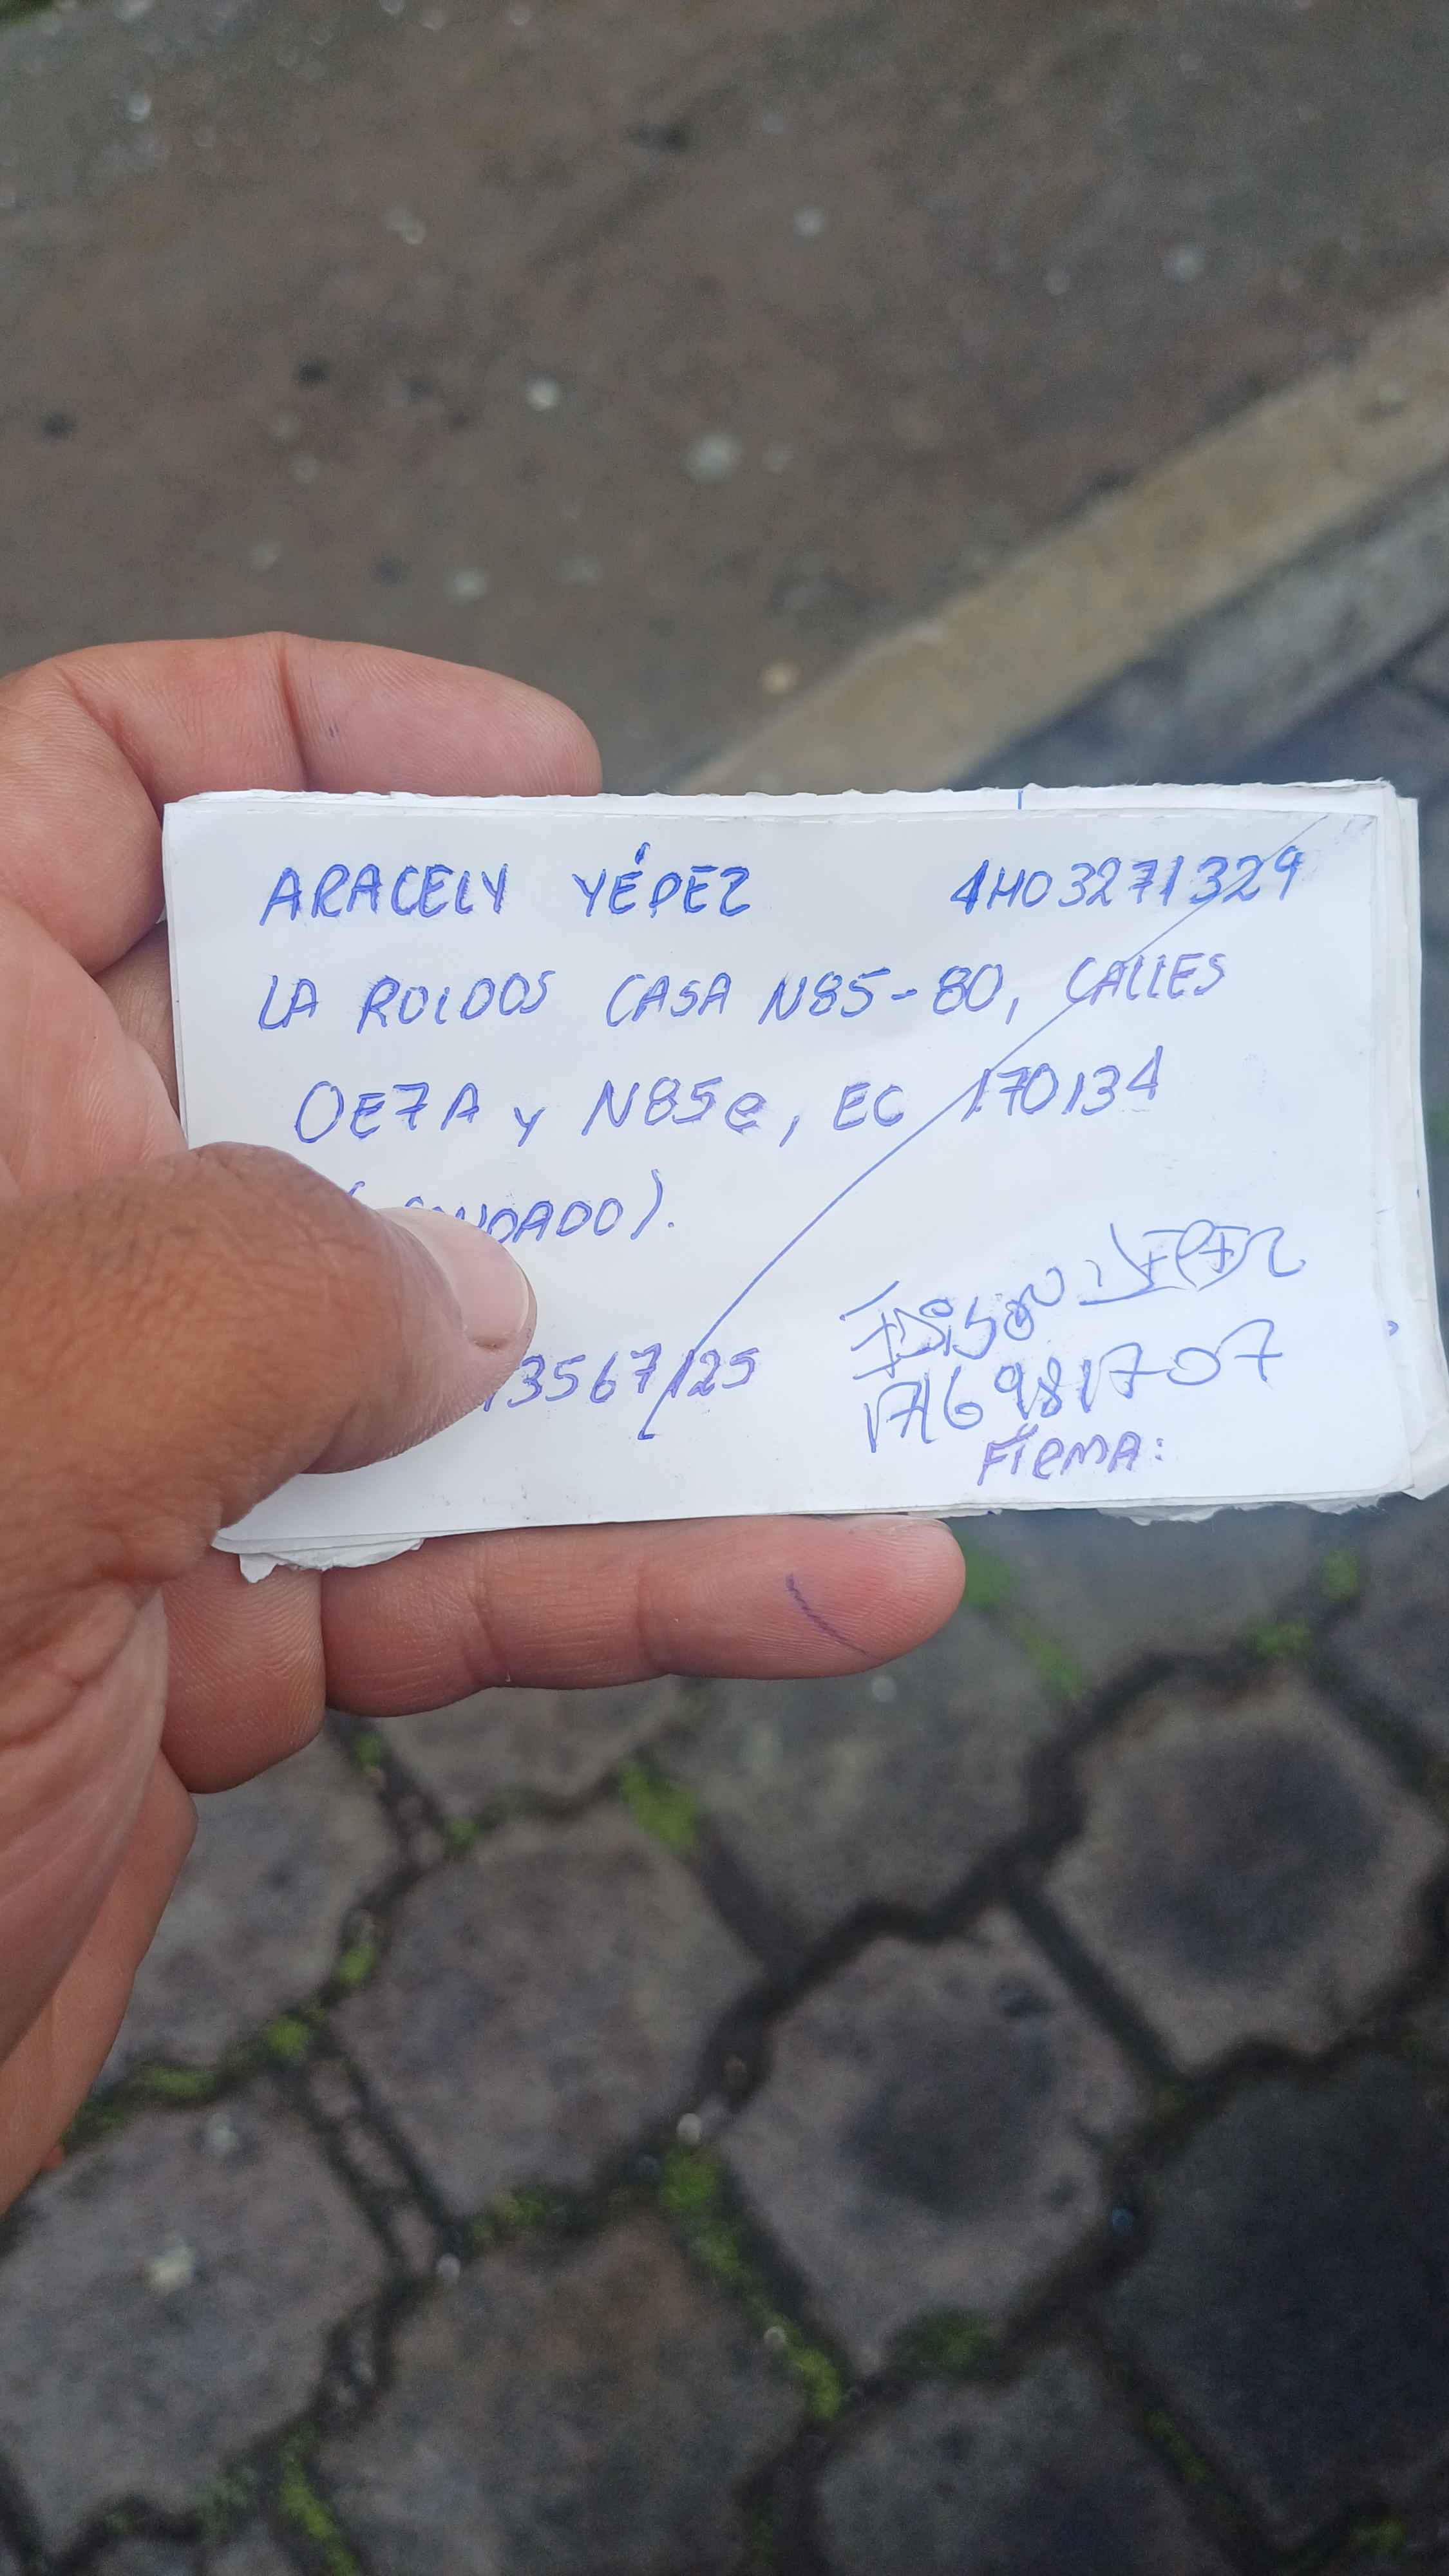 ARACELY YÉPEZ 4H03271329
LA ROLDOS CASA N85-80, CALLES
OE7A y N85e, EC 170134
3567125
EDISON YEPEZ
1716981707
FIRMA: